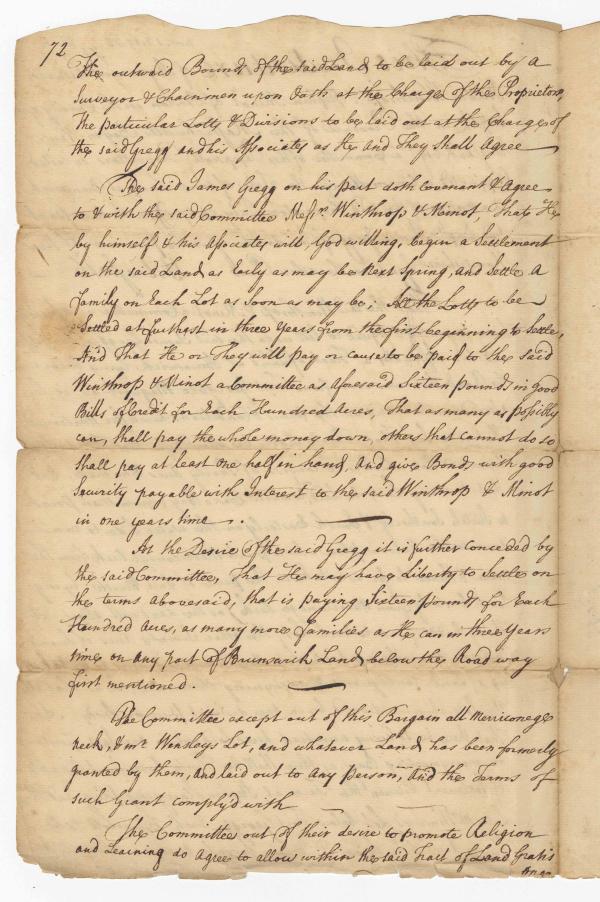 72
The outward Bounds of the said Land to be laid out by a
Surveyor & Chainmen upon Oath at the Charge of the Proprietors,
The particular Lotts & Divisions to be laid out at the Charge of
the said Gregg and his Associates as He and They Shall Agree
The said James Gregg on his part doth Covenant & Agree
to & with the said Committee Messrs. Winthrop & Minot, That He
by himself & his Associates will, God willing, begin a Settlement
on the said Land as Early as may be Next Spring, and Settle a
family on Each Lot as Soon as may be; All the Lotts to be
Settled at furthest in three Years from the first beginning to Settle,
And That He or They will pay or cause to be paid to the said
Winthrop & Minot a Committee as aforesaid Sixteen pounds in good
Bills of Credit for Each Hundred Acres, That as many as possibly
can, shall pay the whole money down, others that cannot do so
shall pay at least one half in hand, and give Bonds with good
Security payable with Interest to the said Winthrop & Minot
in one years time.
At the Desire of the said Gregg it is further conceded by
the said Committee, That He may have Liberty to Settle on
the terms abovesaid, that is paying Sixteen pounds for Each
Hundred Acres, as many more families as He can in three Years
time on any part of Brunswick Land below the Road way
first mentioned.
The Committee except out of this Bargain all Merriconege
neck, & mr. Wensleys Lot, and whatever Land has been formerly
granted by them, and laid out to any person, and the Terms of
such Grant comply'd with
The Committee out of their desire to promote Religion
and Learning do Agree to allow within the said Tract of Land Gratis